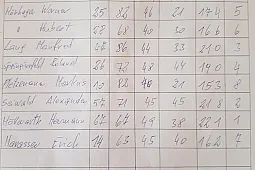 Werner 25 82 46 21 174 5
" Hubert 22 68 40 30 166 6
Lang Manfred 47 86 44 33 210 3
Roland 26 72 48 44 190 4
Markus 10 82 40 21 153 8
Alexander 57 71 45 45 218 2
Hermann 67 67 49 38 221 1
Erich 14 63 45 40 162 7